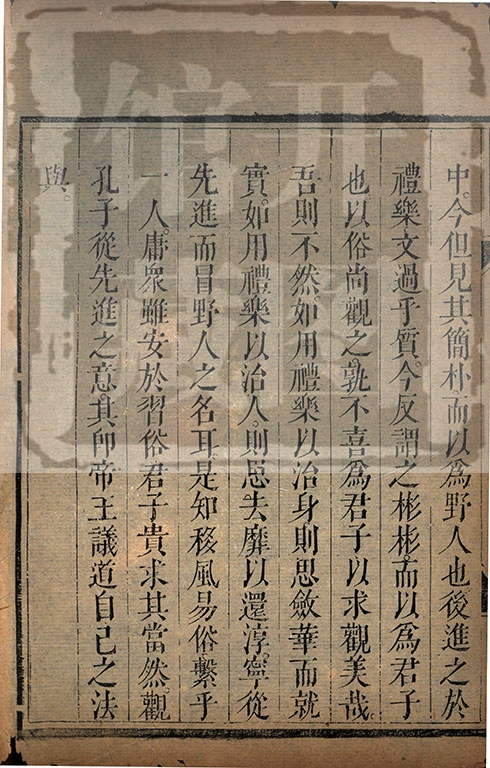 中。今但見其簡朴而以爲野人也後進之於
禮樂文過乎質。今反謂之彬彬而以爲君子
也以俗尚觀之。孰不喜爲君子以求觀美哉。
吾則不然。如用禮樂以治身則思斂華而就
實。如用禮樂以治人。則思去靡以還淳。寧從
先進而冒野人之名耳。是知移風易俗繫乎
一人。庸衆雖安於習俗君子貴求其當然。觀
孔子從先進之意。其卽帝王議道自己之法
與